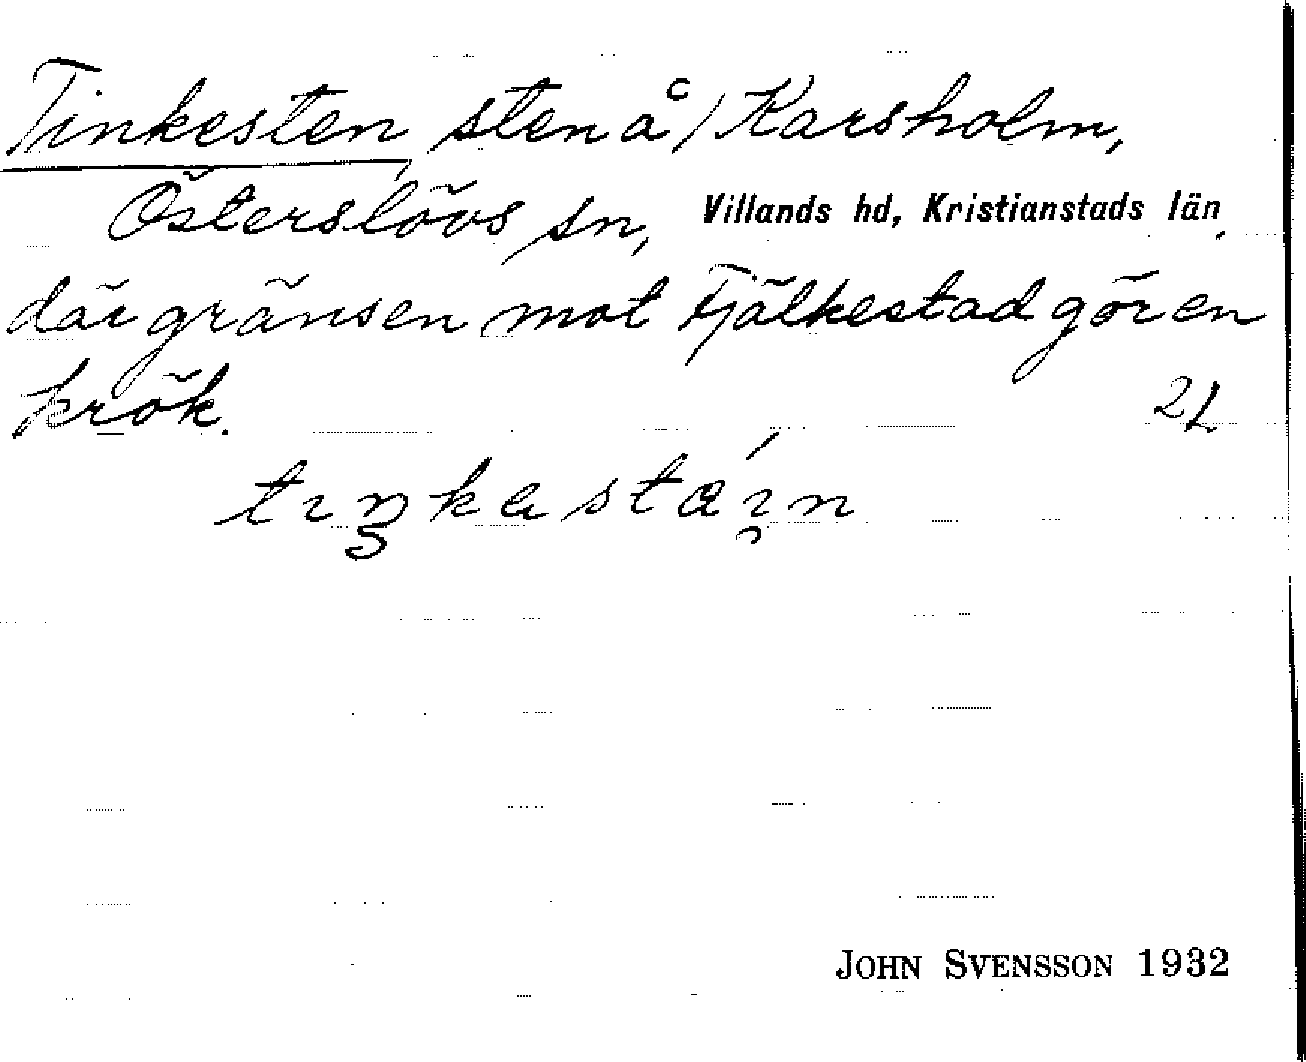 Tinkesten, sten å / Karsholm,
Österslövs sn, Villands hd, Kristianstads län,
där gränsen mot Fjälkestad gör en
krök.
JOHN SVENSSON 1932